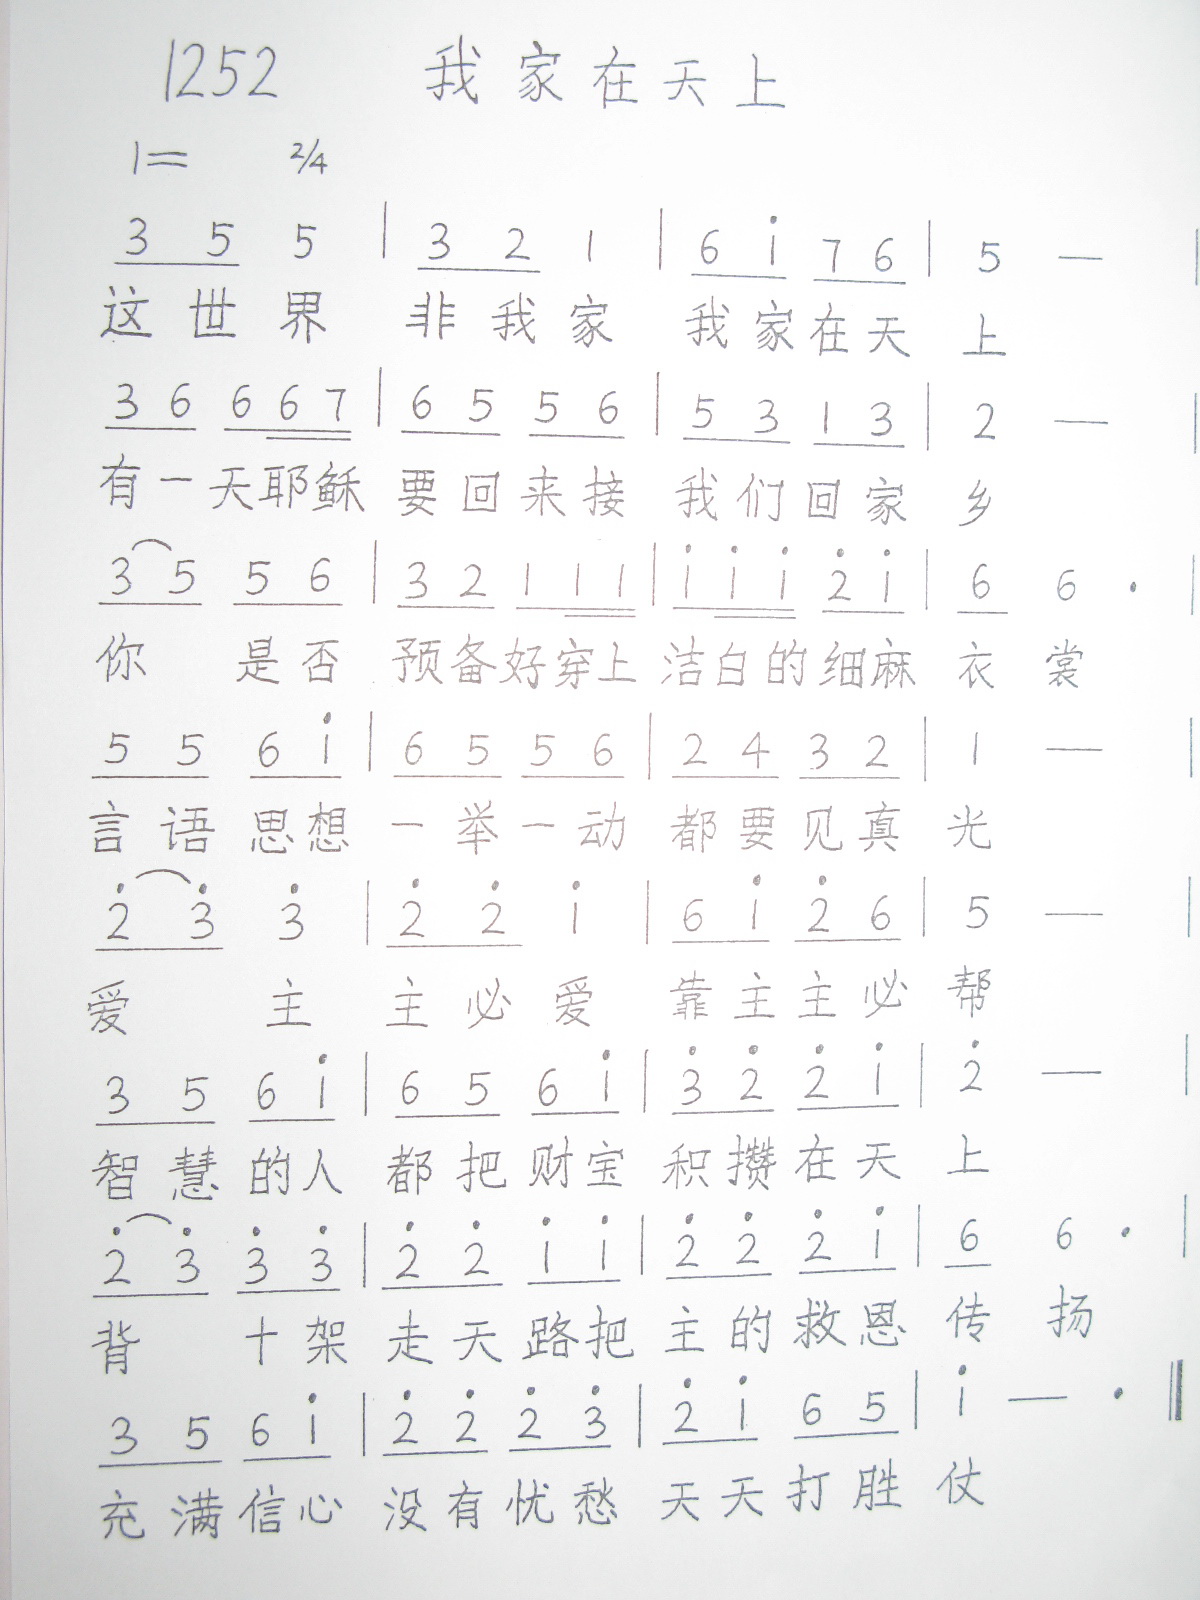 1252 我家在天上
1= 2/4
3 5 5 | 3 2 1 | 6 i̇ 7 6 | 5 — |
这世界 非我家 我家在天上
3 6 6 6 7 | 6 5 5 6 | 5 3 1 3 | 2 — |
有一天耶稣 要回来接 我们回家乡
3 5 5 6 | 3 2 1 1 1 | i̇ i̇ i̇ 2̇ i̇ | 6 6 · |
你 是否 预备好穿上 洁白的细麻 衣裳
5 5 6 i̇ | 6 5 5 6 | 2 4 3 2 | 1 — |
言语思想 一举一动 都要见真光
2̇ 3̇ 3̇ | 2̇ 2̇ i̇ | 6 i̇ 2̇ 6 | 5 — |
爱 主 主必爱 靠主主必帮
3 5 6 i̇ | 6 5 6 i̇ | 3̇ 2̇ 2̇ i̇ | 2̇ — |
智慧的人 都把财宝 积攒在天上
2̇ 3̇ 3̇ 3̇ | 2̇ 2̇ i̇ i̇ | 2̇ 2̇ 2̇ i̇ | 6 6 · |
背 十架 走天路把 主的救恩 传扬
3 5 6 i̇ | 2̇ 2̇ 2̇ 3̇ | 2̇ i̇ 6 5 | i̇ — · ‖
充满信心 没有忧愁 天天打胜仗